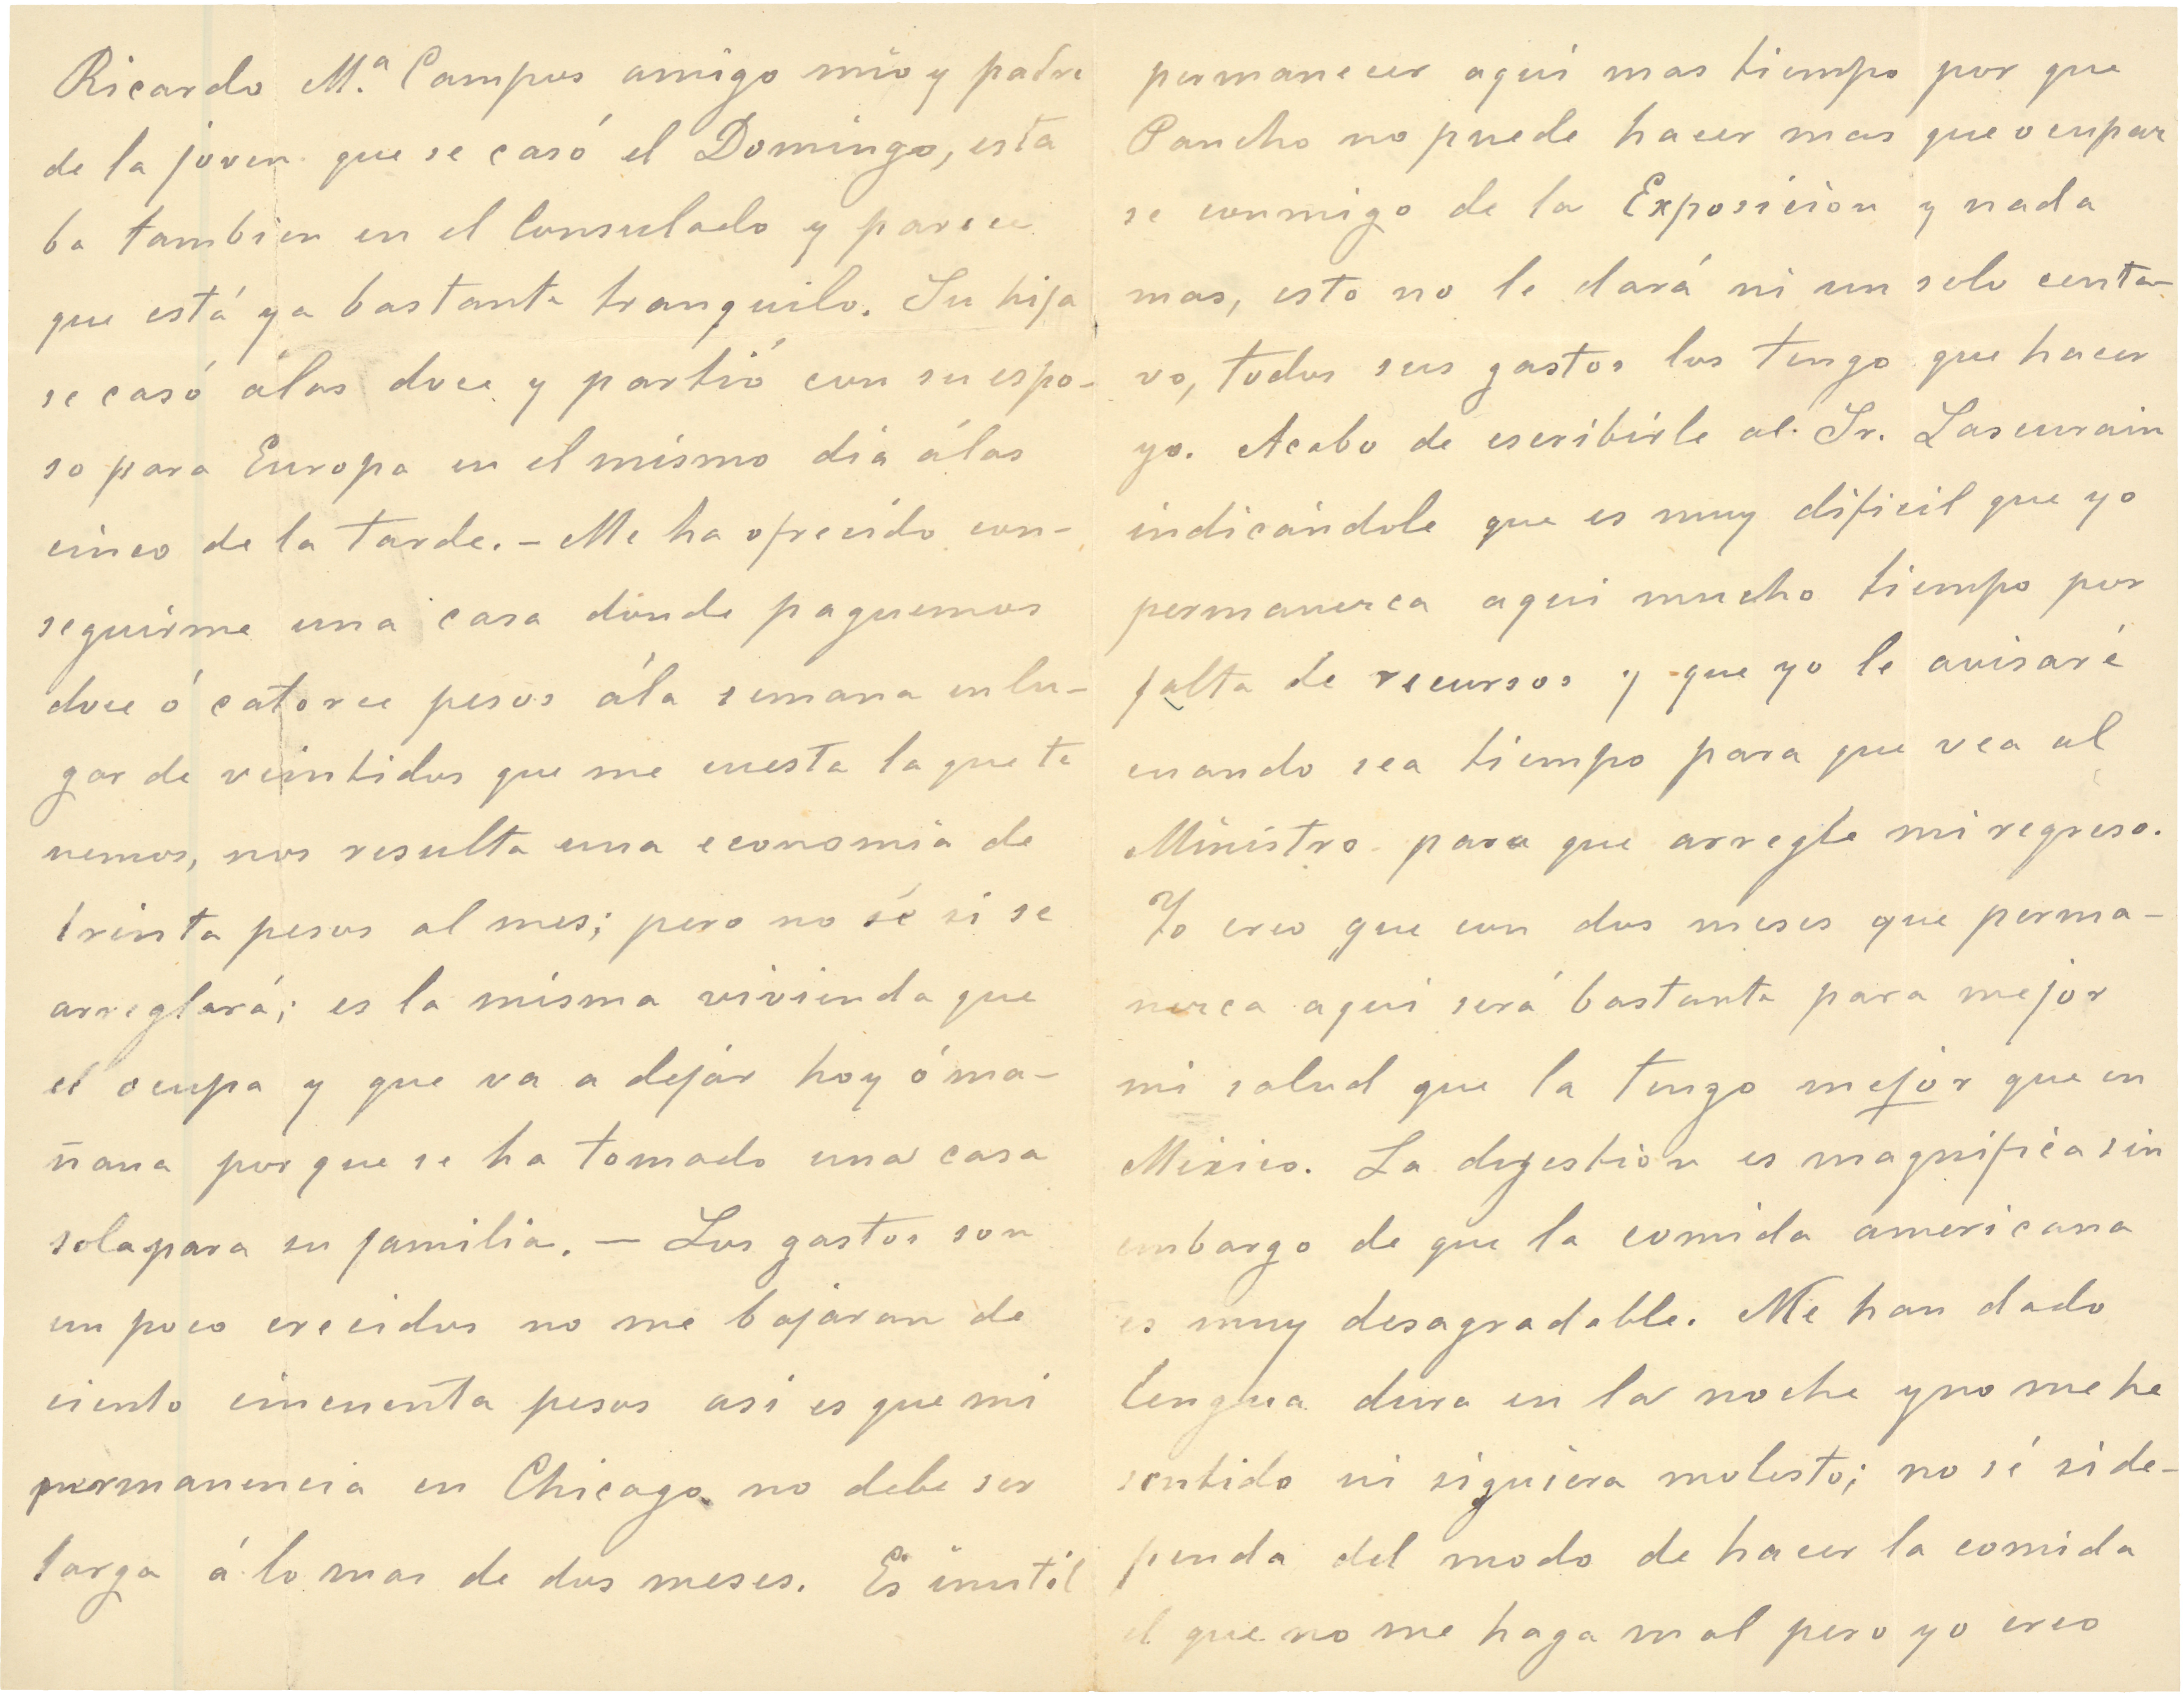 Ricardo M.ª Campos amigo mio y padre
de la joven que se casó el Domingo, esta
ba tambien en el Consulado y parece
que está ya bastante tranquilo. Su hija
se casó álas doce y partió con su espo-
so para Europa en el mismo dia álas
cinco de la tarde. - Me ha ofrecido con-
seguirme una casa donde paguemos
doce ó catorce pesos ála semana en lu-
gar de veintidos que me cuesta la que te
nemos, nos resulta una economia de
treinta pesos al mes; pero no sé si se
arreglará; es la misma vivienda que
el ocupa y que va a dejar hoy ó ma-
ñana por que se ha tomado una casa
sola para su familia. - Los gastos son
un poco crecidos no me bajaran de
ciento cincuenta pesos asi es que mi
permanencia en Chicago no debe ser
larga á lo mas de dos meses. Es inutil
permanecer aqui mas tiempo por que
Pancho no puede hacer mas que ocupar
se conmigo de la Exposicion y nada
mas, esto no le dará ni un solo centa-
vo, todos sus gastos los tengo que hacer
yo. Acabo de escribirle al Sr. Lascurain
indicándole que es muy dificil que yo
permanezca aqui mucho tiempo por
falta de recursos y que yo le avisaré
cuando sea tiempo para que vea al
Ministro para que arregle mi regreso.
Yo creo que con dos meses que perma-
nezca aqui será bastante para mejor
mi salud que la tengo mejor que en
Mexico. La digestion es magnifica sin
embargo de que la comida americana
es muy desagradable. Me han dado
lengua dura en la noche y no me he
sentido ni siquiera molesto; no sé si de-
penda del modo de hacer la comida
el que no me haga mal pero yo creo